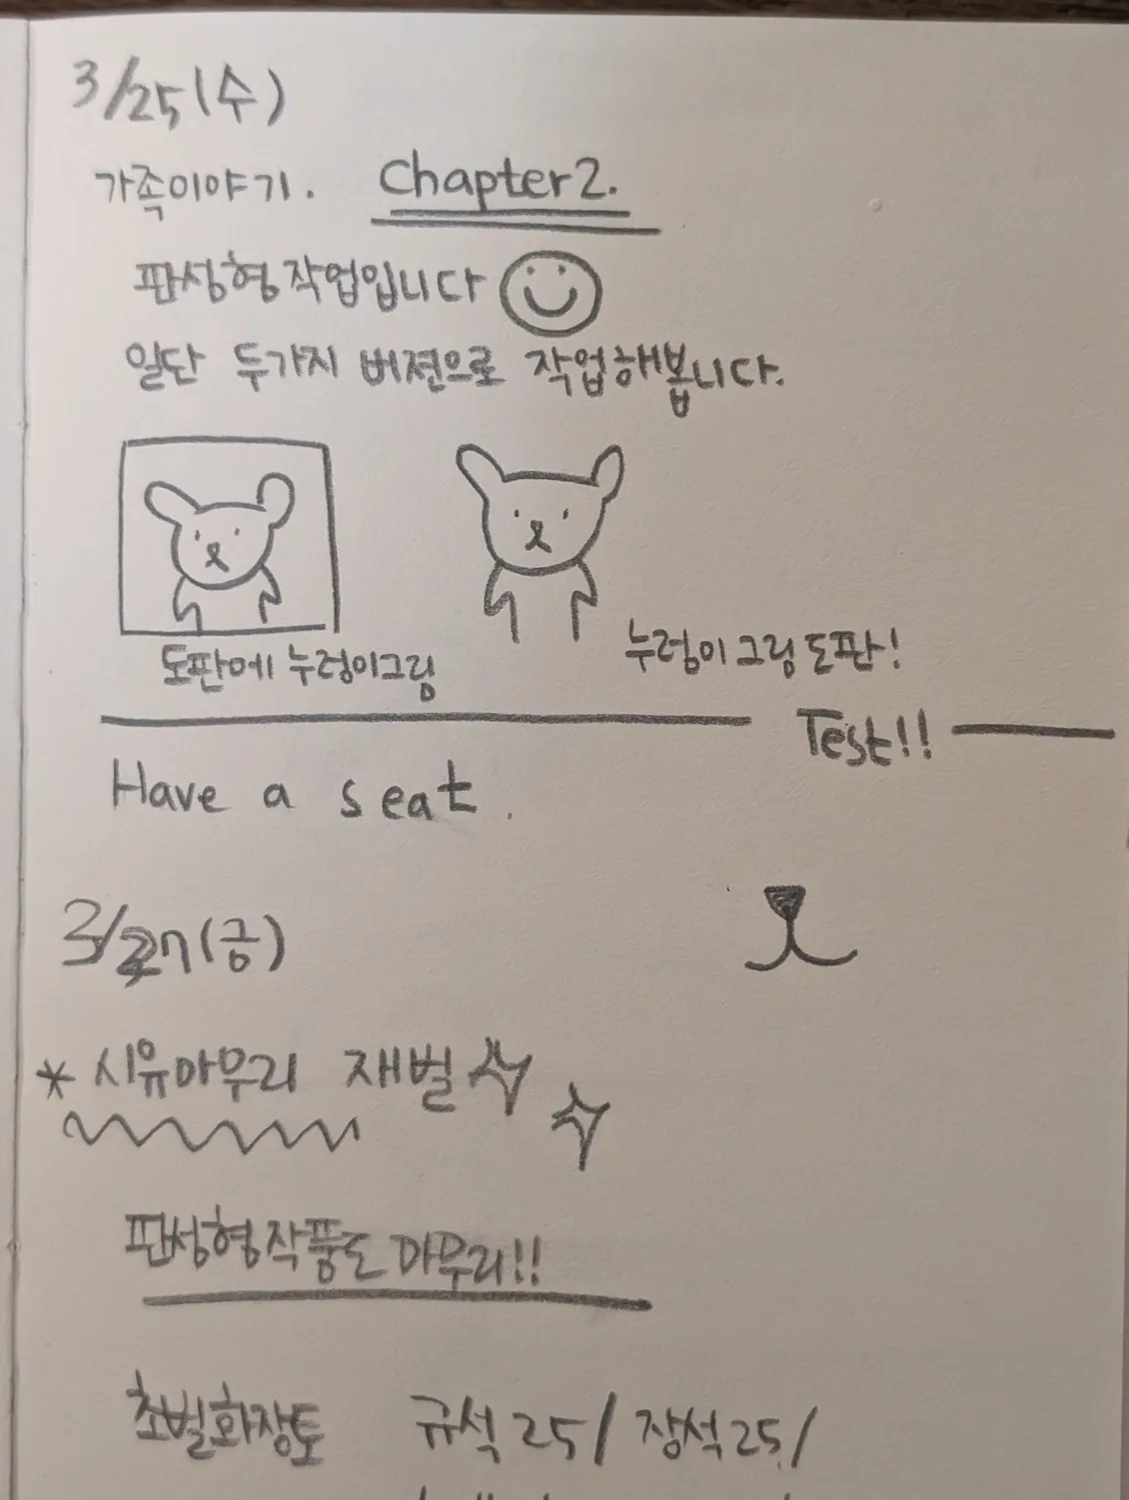 3/25(수)
가족이야기. Chapter2.
판성형작업입니다
일단 두가지 버젼으로 작업해봅니다.
도판에 누렁이그림
누렁이그림도판!
Test!!
Have a seat.
3/27(금)
* 시유마무리 재벌
판성형작품도 마무리!!
초벌화장토 규석25/장석25/